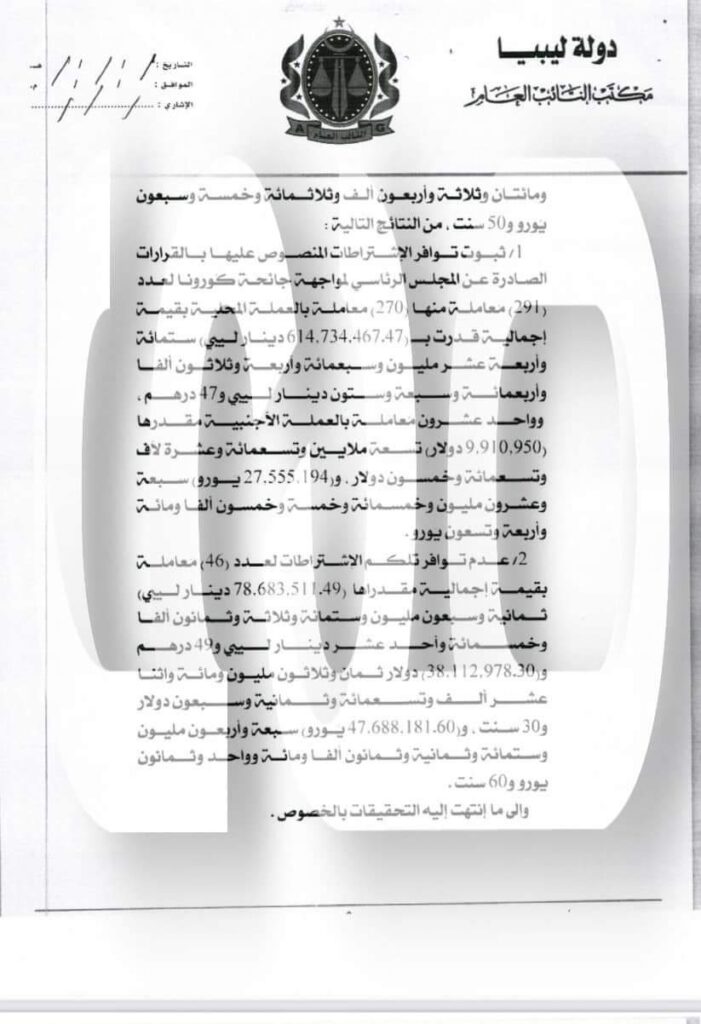 دولة ليبيا
مكتب النائب العام
التاريخ : / / هـ
الموافق : / / م.
الإشاري :
النائب العام
A G
ومائتان وثلاثة وأربعون ألف وثلاثمائة وخمسة وسبعون
يورو و50 سنت ، من النتائج التالية :
1/ ثبوت توافر الإشتراطات المنصوص عليها بالقرارات
الصادرة عن المجلس الرئاسي لمواجهة جائحة كورونا لعدد
(291) معاملة منها (270) معاملة بالعملة المحلية بقيمة
إجمالية قدرت بـ (614.734.467.47 دينار ليبي) ستمائة
وأربعة عشر مليون وسبعمائة واربعة وثلاثون ألفا
وأربعمائة وسبعة وستون دينار ليبي و47 درهم ،
وواحد عشرون معاملة بالعملة الأجنبية مقدرها
(9.910,950 دولار) تسعة ملايين وتسعمائة وعشرة لاف
وتسعمائة وخمسون دولار ، و(27.555.194 يورو) سبعة
وعشرون مليون وخمسمائة وخمسة وخمسون ألفا ومائة
وأربعة وتسعون يورو .
2/ عدم توافر تلكم الإشتراطات لعدد (46) معاملة
بقيمة إجمالية مقدراها (78.683.511.49 دينار ليبي)
ثمانية وسبعون مليون وستمائة وثلاثة وثمانون ألفا
وخمسمائة وأحد عشر دينار ليبي و49 درهم
و(38.112,978.30) دولار ثمان وثلاثون مليون ومائة واثنا
عشر ألف وتسعمائة وثمانية وسبعون دولار
و30 سنت ، و(47.688.181.60 يورو) سبعة وأربعون مليون
وستمائة وثمانية وثمانون ألفا ومائة وواحد وثمانون
يورو و60 سنت .
والى ما إنتهت إليه التحقيقات بالخصوص .